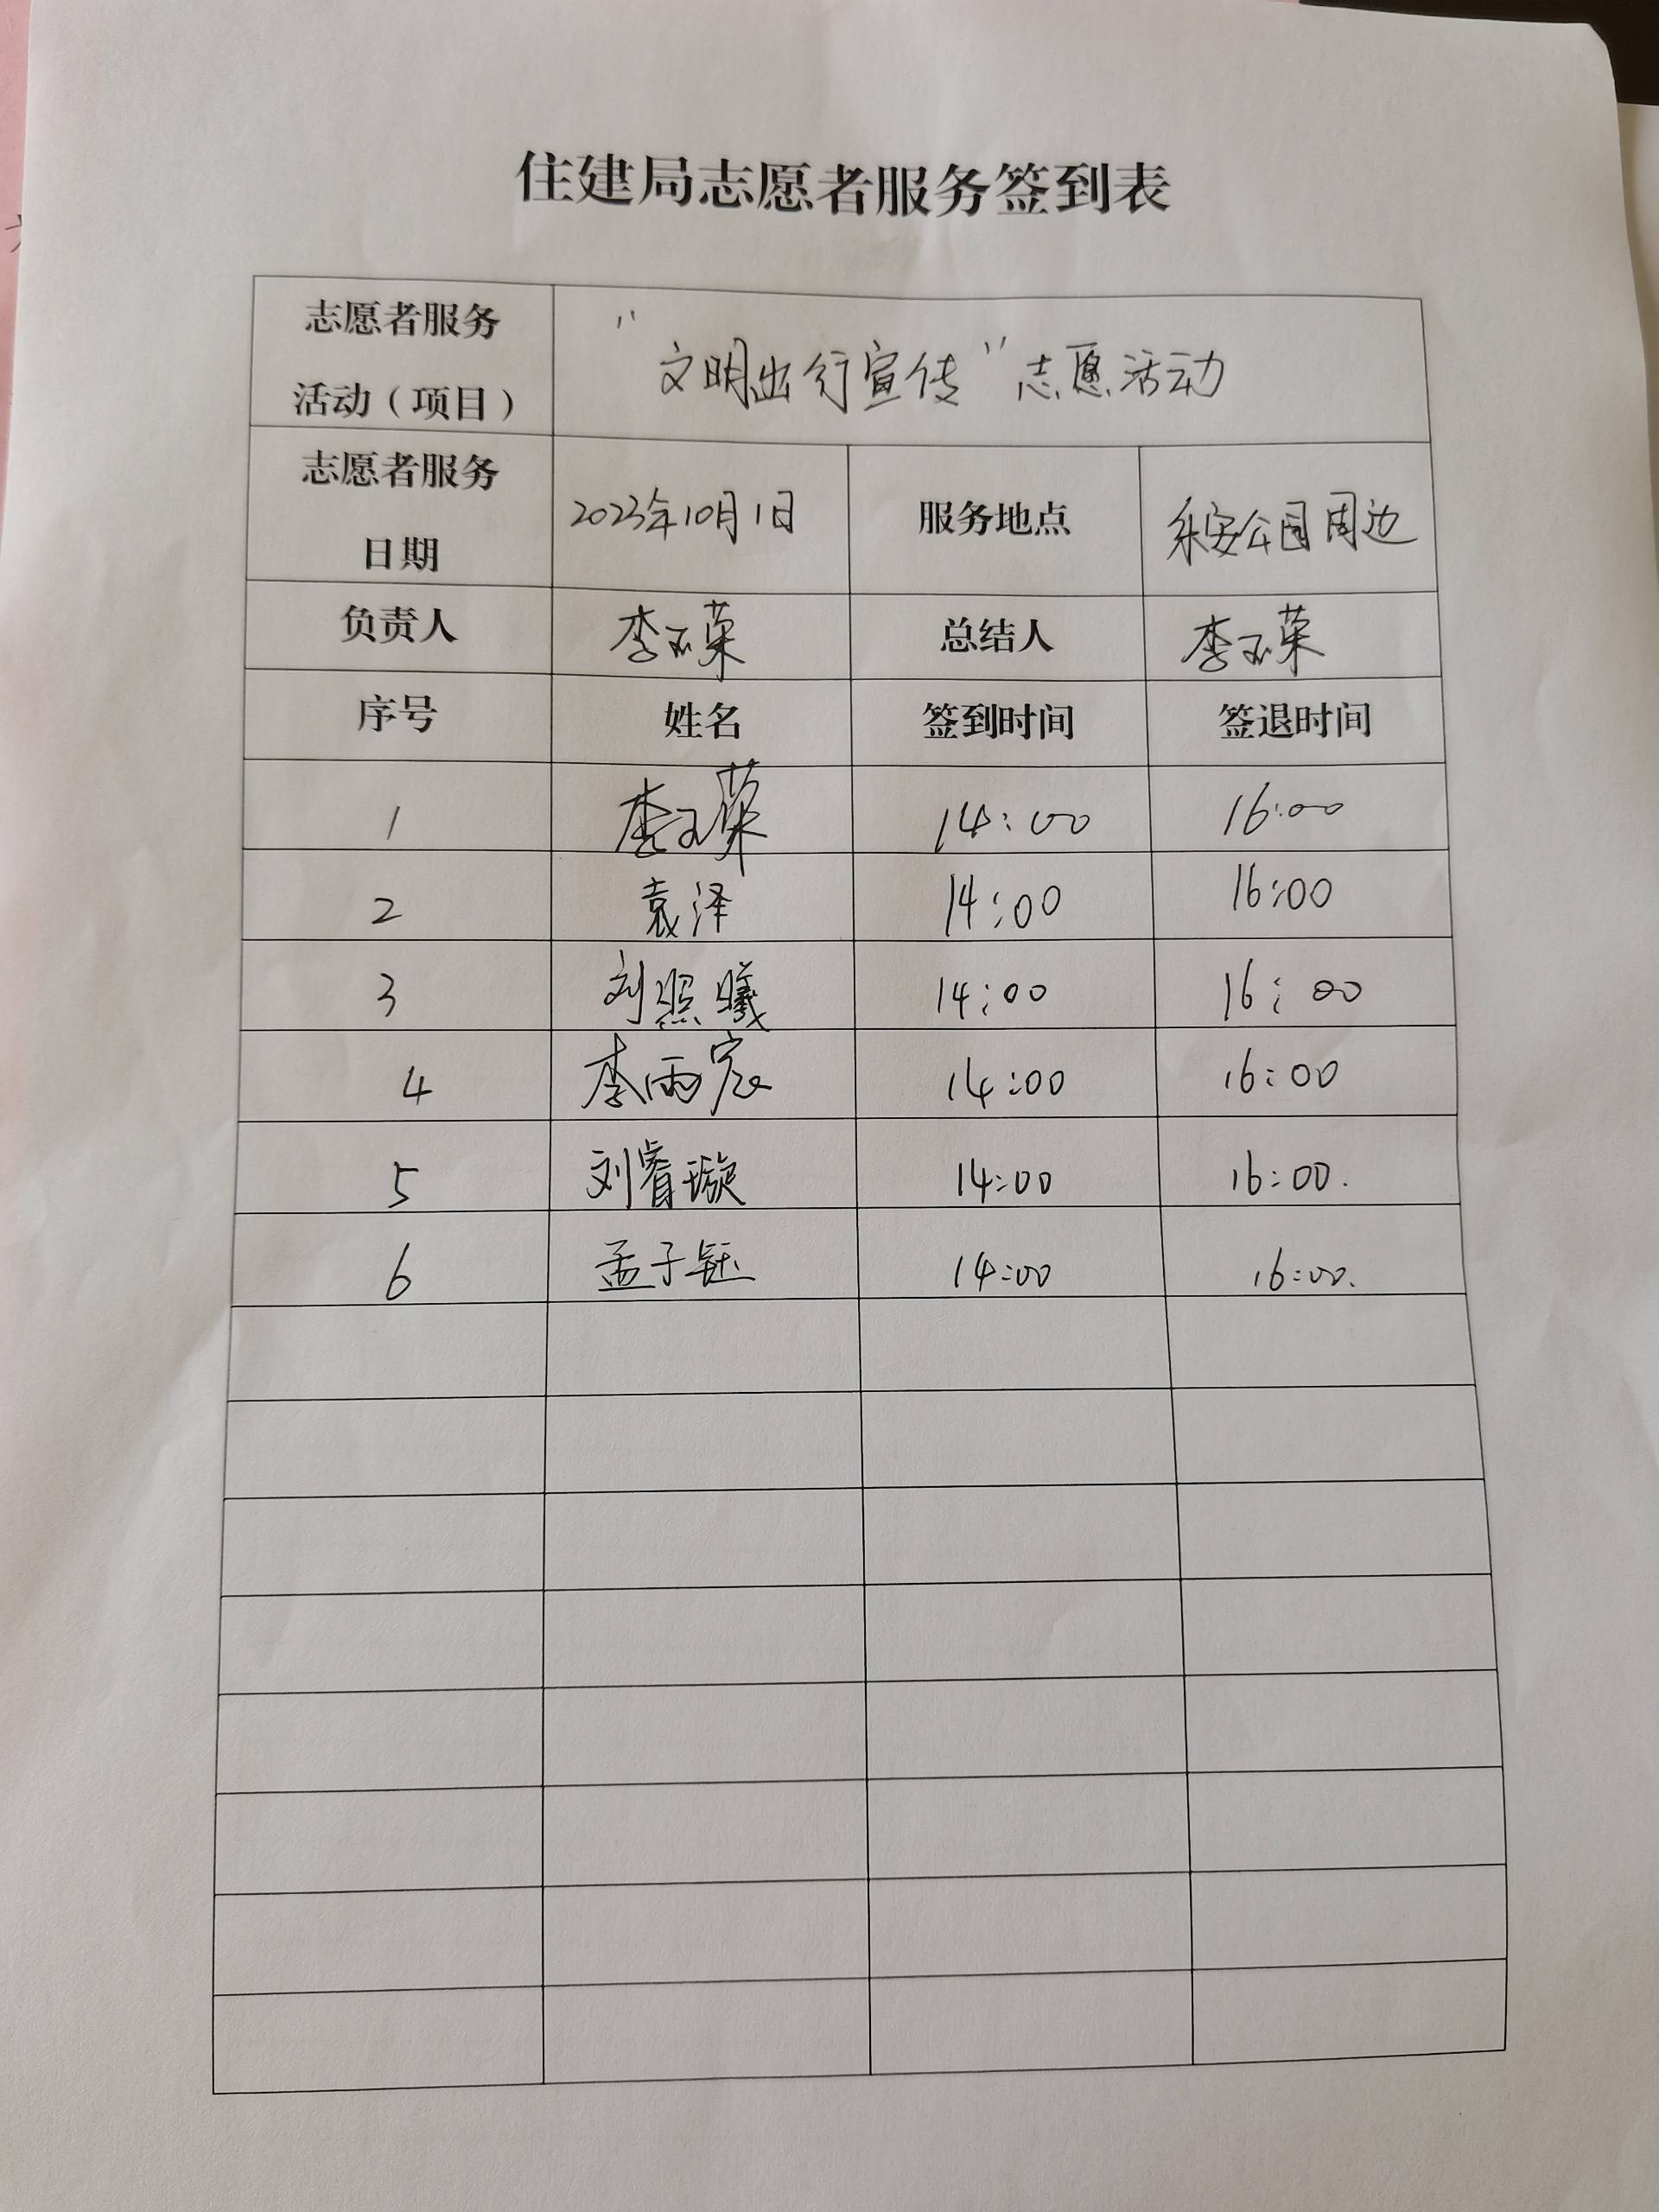 住建局志愿者服务签到表
志愿者服务
活动（项目）
“文明出行宣传”志愿活动
志愿者服务
日期
2023年10月1日
服务地点
公园周边
负责人
李玉荣
总结人
李玉荣
序号 姓名 签到时间 签退时间
1 李玉荣 14:00 16:00
2 袁泽 14:00 16:00
3 刘照曦 14:00 16:00
4 李雨宸 14:00 16:00
5 刘睿璇 14:00 16:00.
6 孟子钰 14:00 16:00.